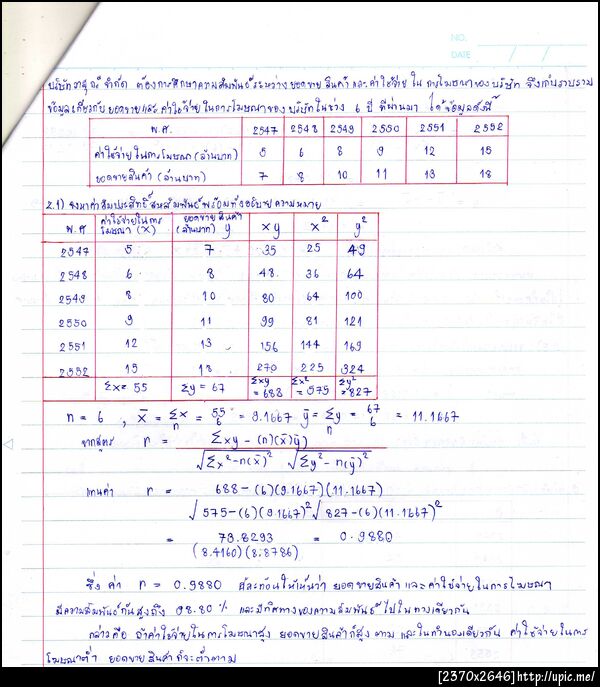 NO.
DATE
บริษัทอาสุ จำกัด ต้องการศึกษาความสัมพันธ์ระหว่างยอดขายสินค้า และค่าใช้จ่าย ใน การโฆษณาของบริษัท จึงเก็บรวบรวม
ข้อมูลเกี่ยวกับยอดขายและค่าใช้จ่ายในการโฆษณาของบริษัทในช่วง 6 ปี ที่ผ่านมา ได้ข้อมูลดังนี้
พ.ศ. 2547 2548 2549 2550 2551 2552
ค่าใช้จ่ายในการโฆษณา (ล้านบาท) 5 6 8 9 12 15
ยอดขายสินค้า (ล้านบาท) 7 8 10 11 13 18
2.1) จงหาค่าสัมประสิทธิ์สหสัมพันธ์พร้อมทั้งอธิบายความหมาย
พ.ศ ค่าใช้จ่ายในการโฆษณา (x) ยอดขายสินค้า (ล้านบาท) y xy x² y²
2547 5 7 35 25 49
2548 6 8 48 36 64
2549 8 10 80 64 100
2550 9 11 99 81 121
2551 12 13 156 144 169
2552 15 18 270 225 324
Σx = 55 Σy = 67 Σxy = 688 Σx² = 575 Σy² = 827
n = 6 , x̄ = Σx/n = 55/6 = 9.1667 ȳ = Σy/n = 67/6 = 11.1667
จากสูตร r = Σxy - (n)(x̄)(ȳ)
√Σx²-n(x̄)² √Σy²-n(ȳ)²
แทนค่า r = 688-(6)(9.1667)(11.1667)
√575-(6)(9.1667)² √827-(6)(11.1667)²
= 73.8293 = 0.9880
(8.4160)(8.8786)
ซึ่ง ค่า r = 0.9880 สะท้อนให้เห็นว่า ยอดขายสินค้า และค่าใช้จ่ายในการโฆษณา
มีความสัมพันธ์กันสูงถึง 98.80 % และมีทิศทางของความสัมพันธ์ไปในทางเดียวกัน
กล่าวคือ ถ้าค่าใช้จ่ายในการโฆษณาสูง ยอดขายสินค้าก็สูงตาม และในทำนองเดียวกัน ค่าใช้จ่ายในการ
โฆษณาต่ำ ยอดขายสินค้าก็จะต่ำตาม
[2370x2646]http://upic.me/